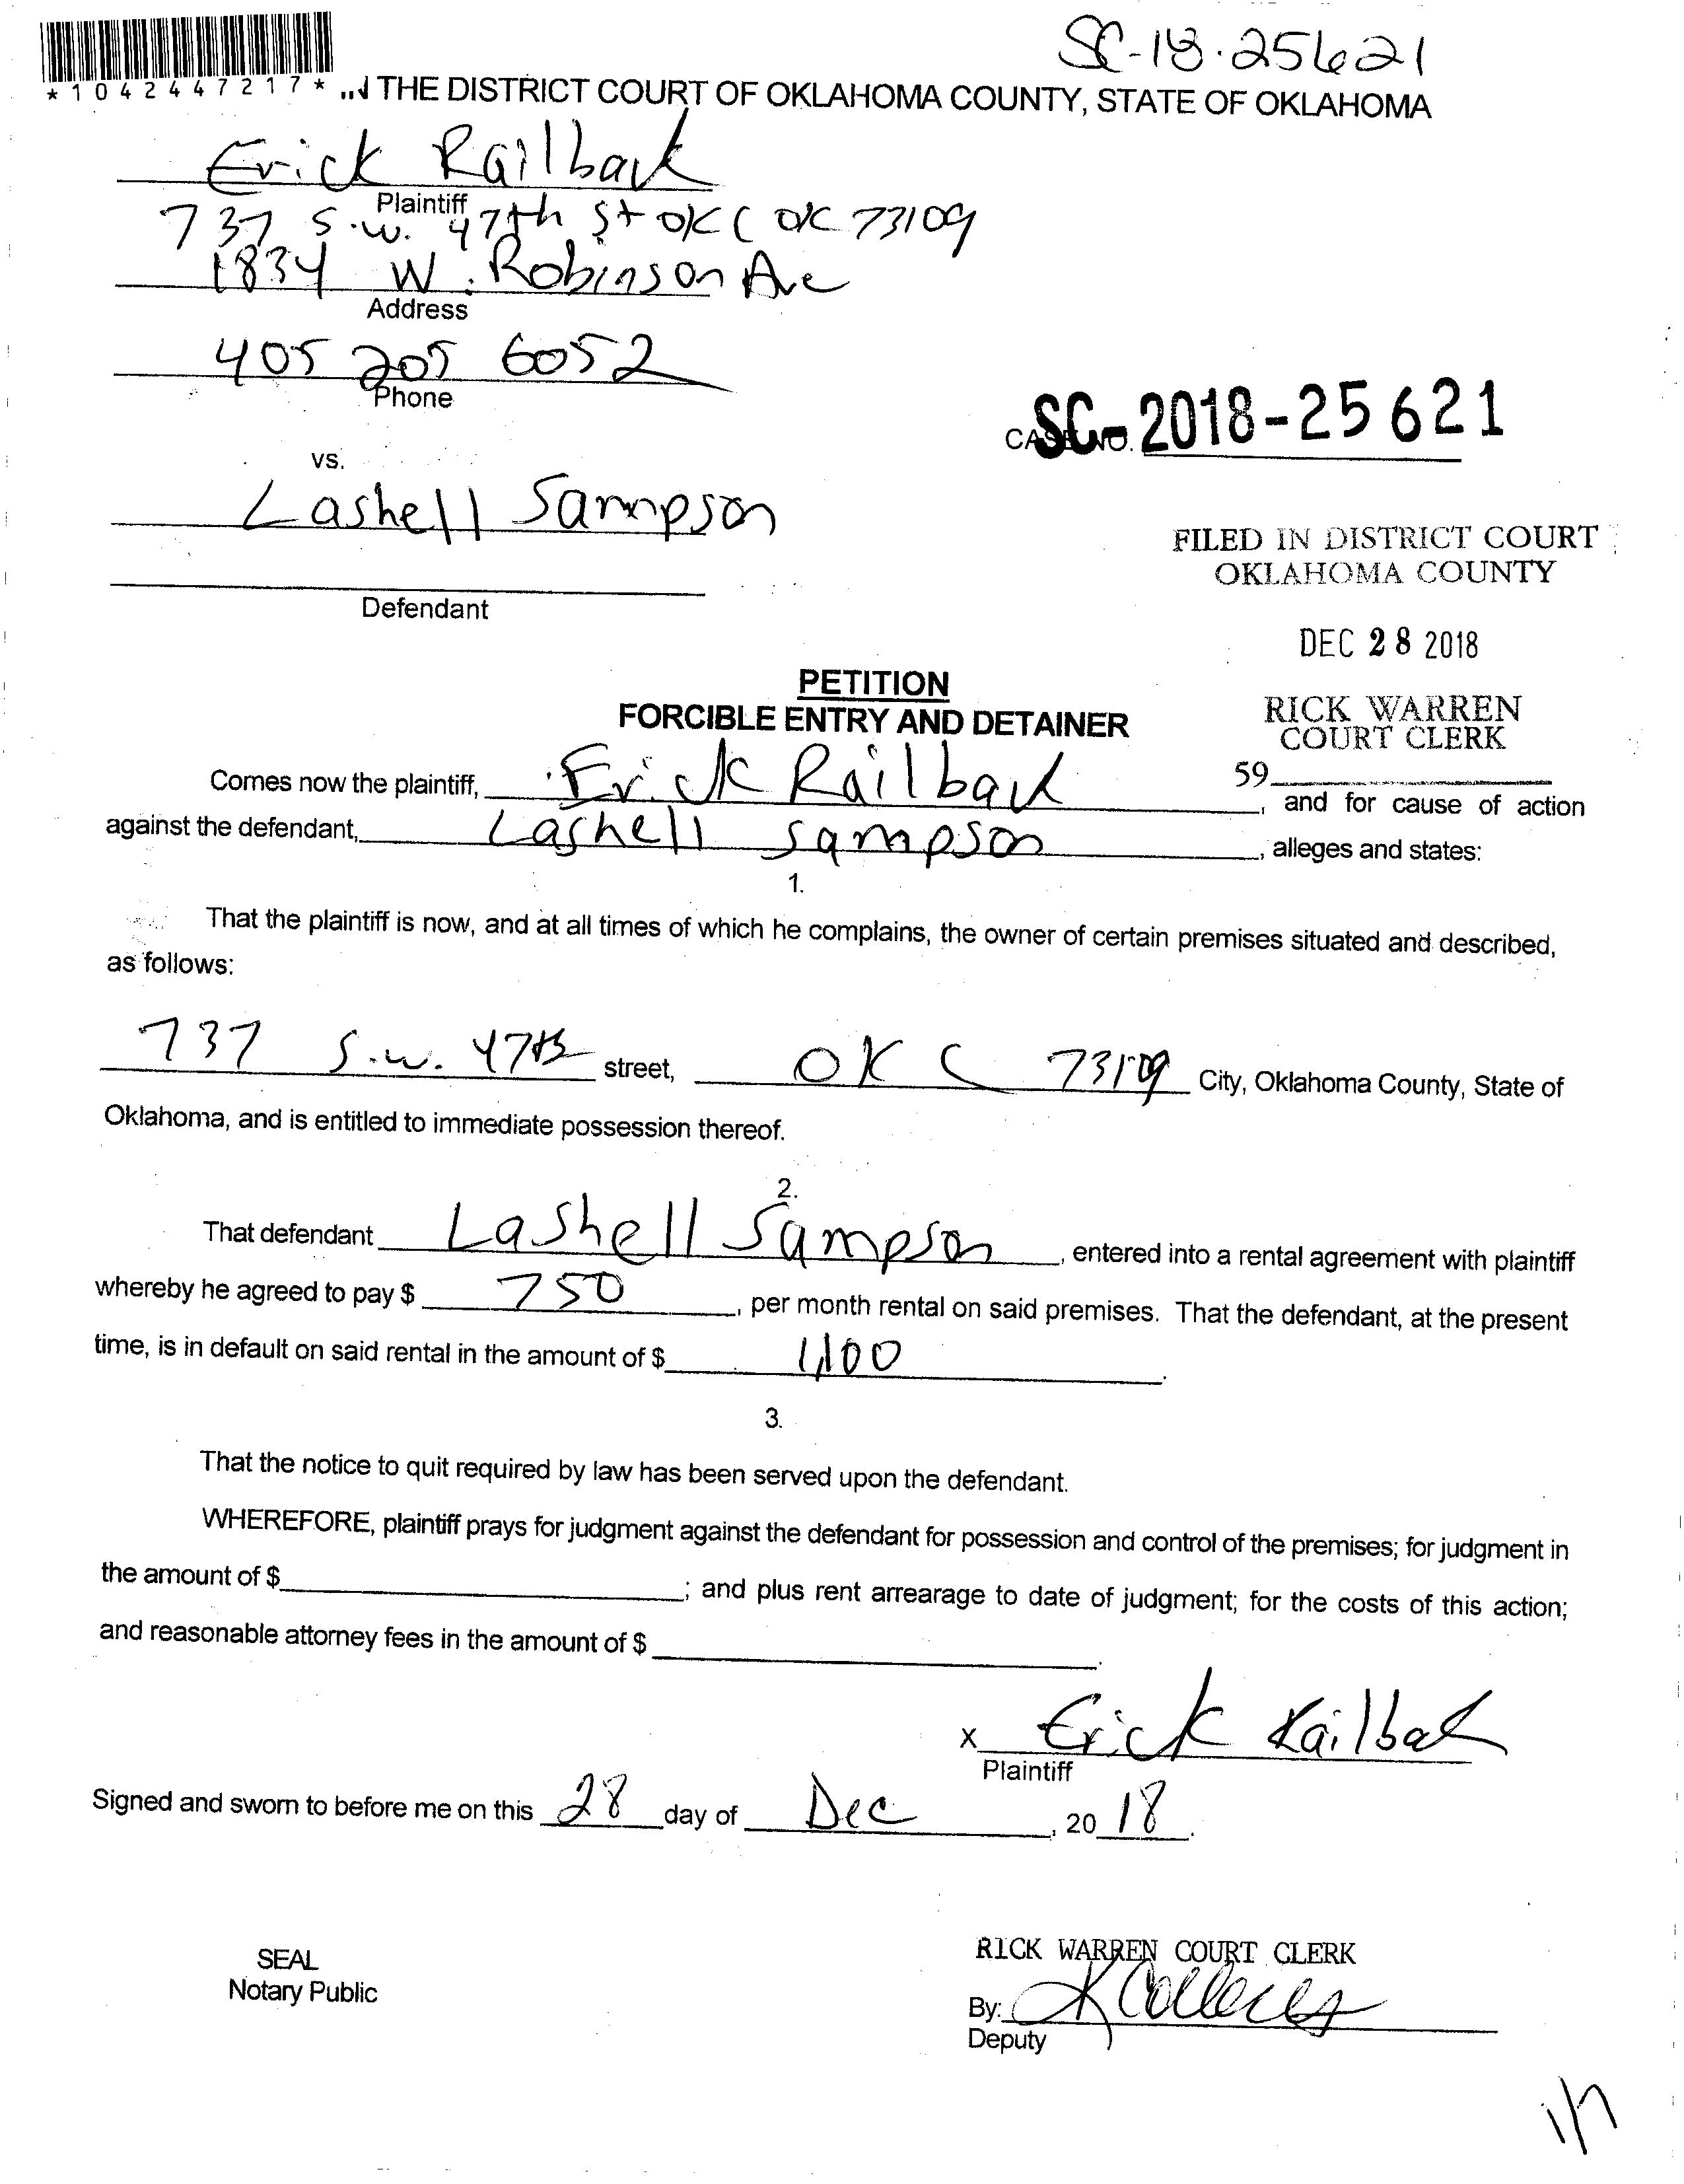 SC-18-25621
*1042447217*
THE DISTRICT COURT OF OKLAHOMA COUNTY, STATE OF OKLAHOMA
Erick Railback
Plaintiff
737 S.W. 47th St OKC OK 73109
1834 W. Robinson Ave
Address
405 205 6052
Phone
CASE NO. SC-2018-25621
vs.
Lashell Sampson
Defendant
FILED IN DISTRICT COURT
OKLAHOMA COUNTY
DEC 28 2018
RICK WARREN
COURT CLERK
59
PETITION
FORCIBLE ENTRY AND DETAINER
Comes now the plaintiff, Erick Railback, and for cause of action
against the defendant, Lashell Sampson, alleges and states:
1.
That the plaintiff is now, and at all times of which he complains, the owner of certain premises situated and described,
as follows:
737 S.W. 47th street, OKC 73109 City, Oklahoma County, State of
Oklahoma, and is entitled to immediate possession thereof.
2.
That defendant Lashell Sampson, entered into a rental agreement with plaintiff
whereby he agreed to pay $ 750, per month rental on said premises. That the defendant, at the present
time, is in default on said rental in the amount of $ 1,100.
3.
That the notice to quit required by law has been served upon the defendant.
WHEREFORE, plaintiff prays for judgment against the defendant for possession and control of the premises; for judgment in
the amount of $ ; and plus rent arrearage to date of judgment; for the costs of this action;
and reasonable attorney fees in the amount of $ .
X Erick Railback
Plaintiff
Signed and sworn to before me on this 28 day of Dec, 2018.
SEAL
Notary Public
RICK WARREN COURT CLERK
By:
Deputy
1/7